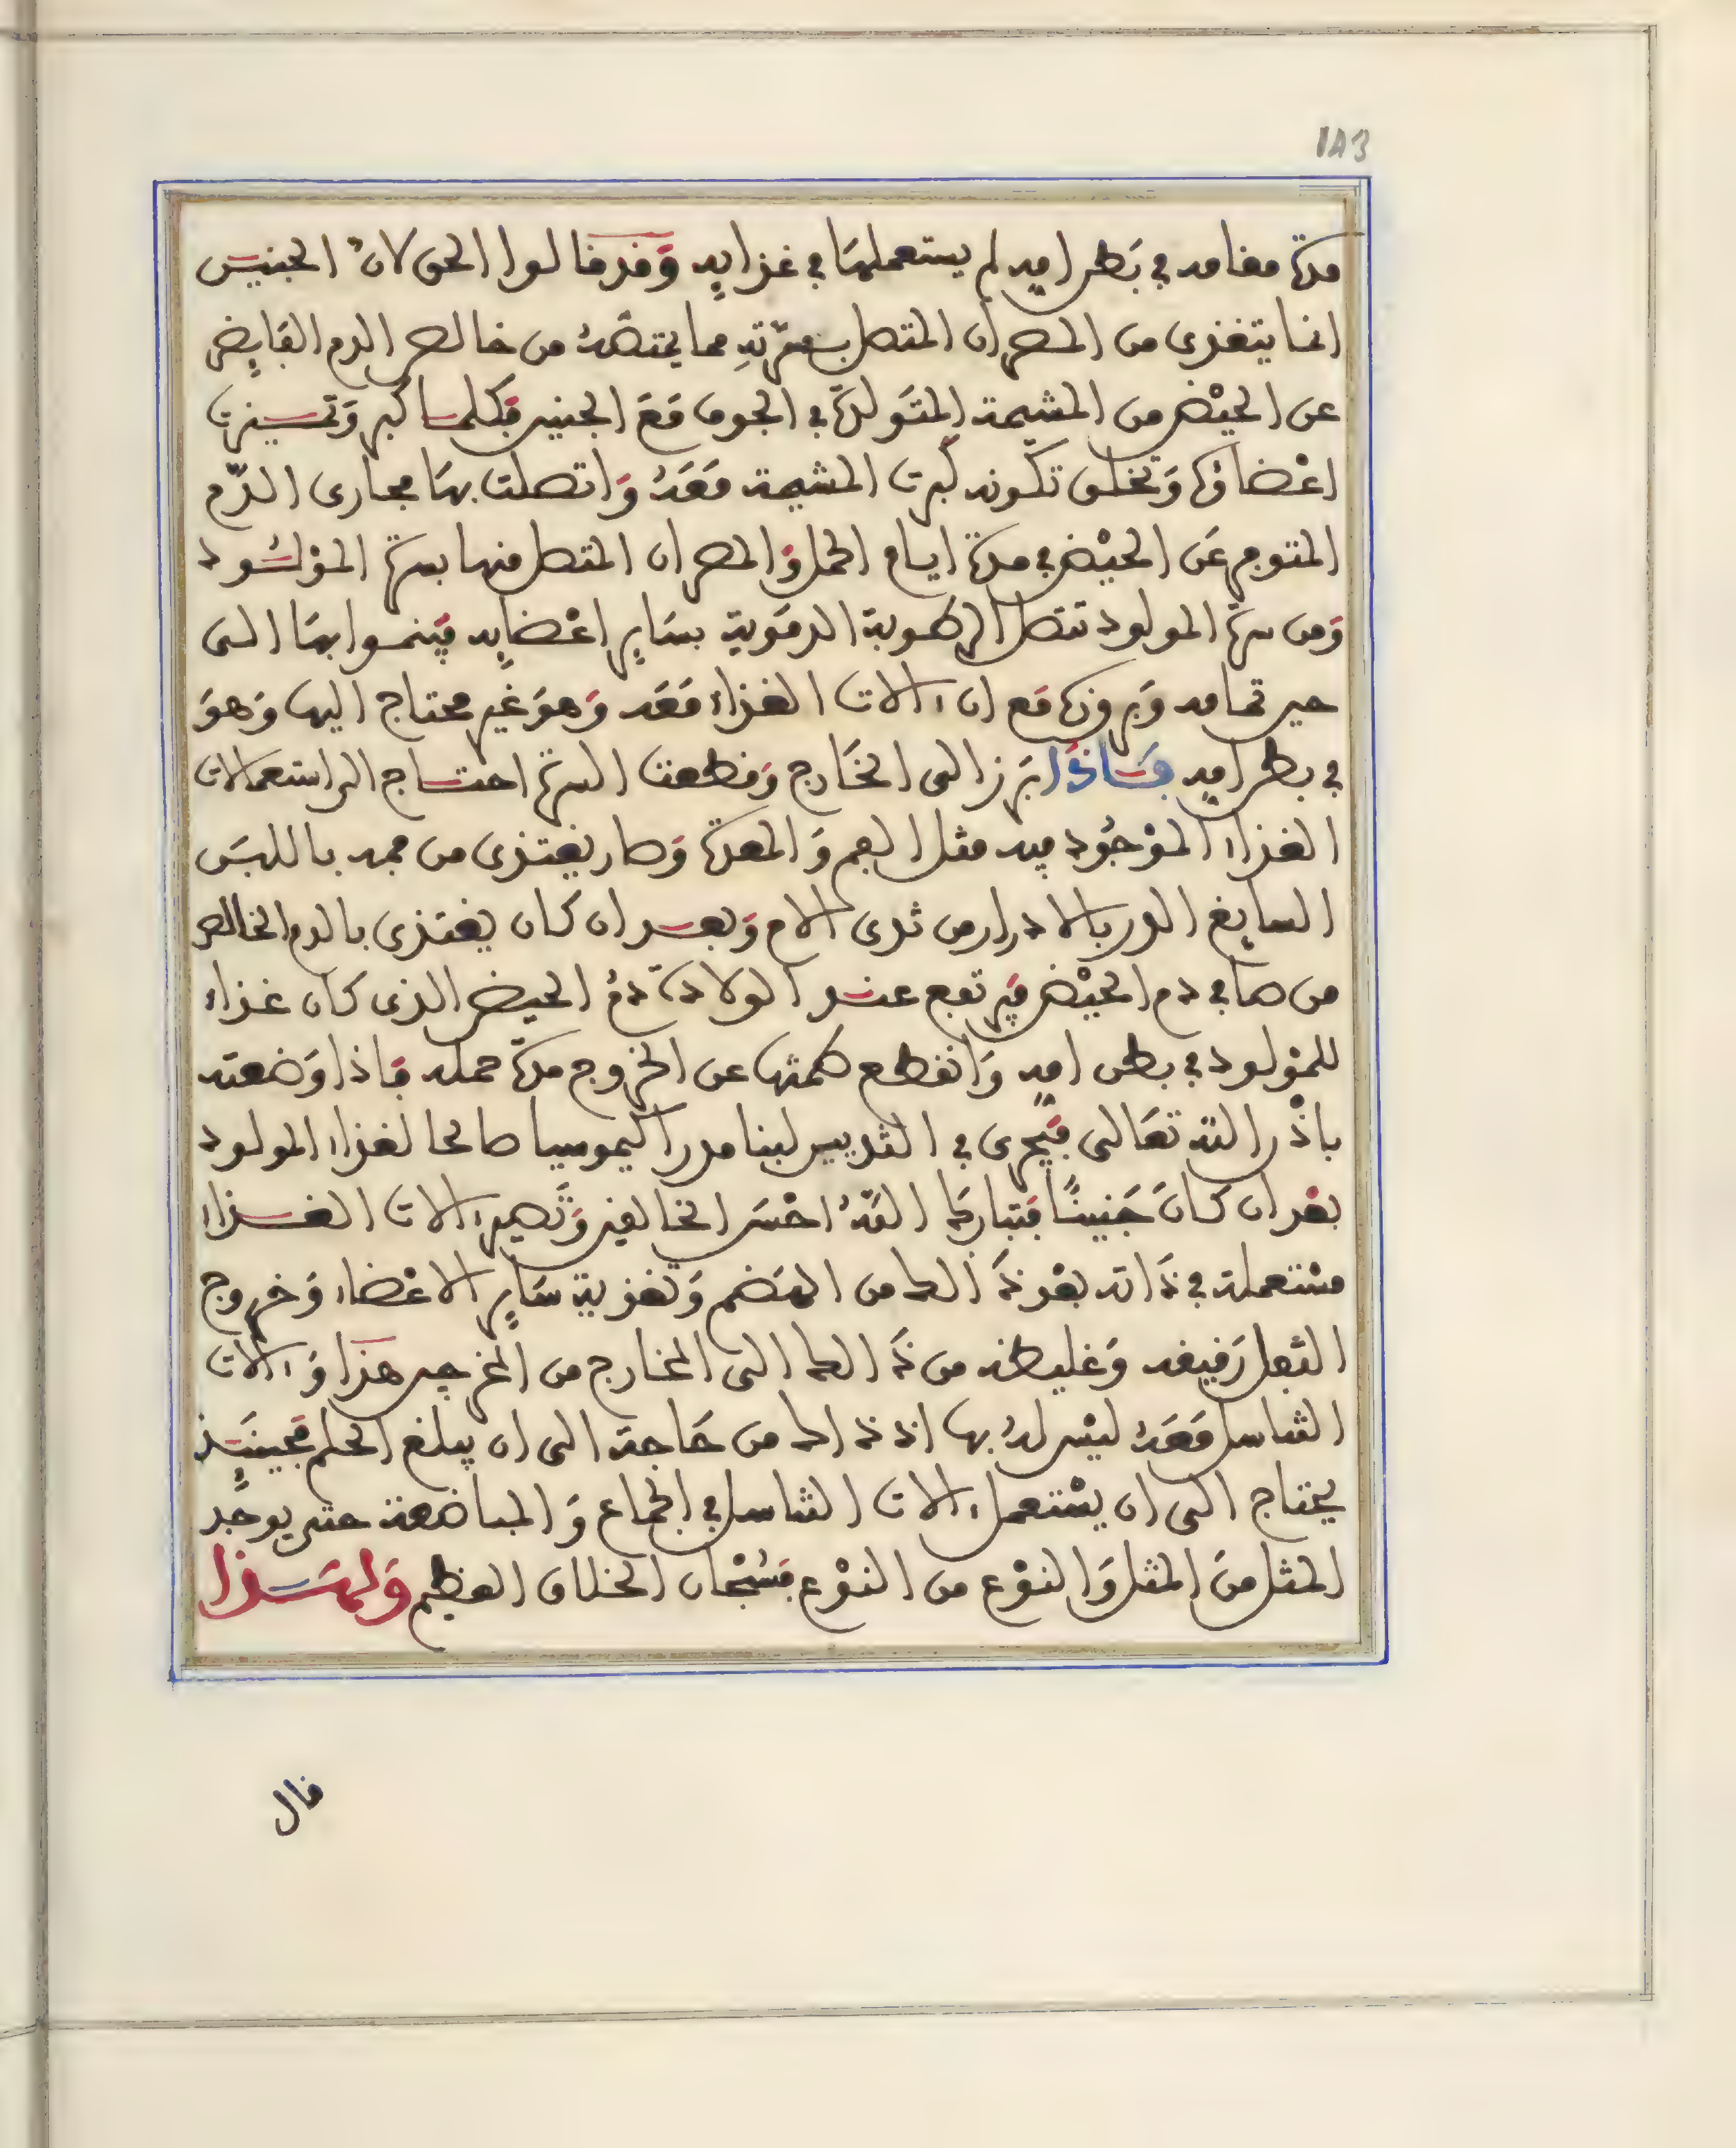 183
مدة مقامه في بَطن امهِ لم يستعملهَا في غذايهِ وَقد قالوا الحق لانُ الجنيـن
انما يتغذى من المصران المتصل بسرّتهِ مما يمتصّهُ من خالص الدم الفايضِ
عن الحيْض من المشيمة المتَولدة في الجوف مَعَ الجنين فَكلمـا كبر وَتمـيزت
اعْضاؤه وَتخلـق تكوّنه كبرت المشيمة مَعَهُ وَاتصلت بهَا مجارى الدّم
المتوجه عَن الحيْض في مدة ايام الحمل وَالمصران المتصل منها بسرة المؤلـود
وَمن سرة المولود تتصل الرطوبة الدمَوية بسَايرِ اعْضايهِ فيَنمـوا بهَا الـى
حين تمامه وَبروزه مَع ان ءالات الغذاء مَعَه وَهوَ غير محتاج اليها وَهوَ
في بطن امهِ فـاذا بَرز الى الخَارج وَقطعت السرة احتـاج الى استعمالات
الغذاء الموْجُود فيه مثل الفم وَالمعدة وَصار يغتذى من فمه باللبَن
السايغ الدر بالادرار من ثدى الام وَبعـد ان كان يغتذى بالدم الخالص
من صافي دم الحيْض فيَرتفع عنـد الولادة دمُ الحيض الذى كان غذاء
للموْلود في بطن امهِ وَانقطع طمثها عن الخروج مدة حمله فاذا وَضعته
باذْن الله تعَالى فيَجرى في الثديين لبنا مدرا كيموسيا صالحا لغذاء المولود
بعْد ان كانَ جَنينًا فتَبارك اللهُ احْسَن الخالقين وَتَصير ءالات الغـذاء
مسْتعملة في ذَاته بعْد ذَ الك من الهَضم وَتغذية سَايرِ الاعْضاء وَخروج
الثفل رَقيقه وَغليظه من ذَ الك الى الخارج من المخرجين هذا وَءالات
التناسل مَعَهُ ليْس لهُ بها اذ ذ اك من حَاجة الى ان يبلغ الحلم فَحينَيـذٍ
يحتاج الى ان يسْتعمل ءالات التناسل في الجماع وَالمباضعة حتى يوجَد
المثل منَ المثل وَالنوْع من النوْع فسُبْحان الخلاق العظيم وَلهـذا
قال